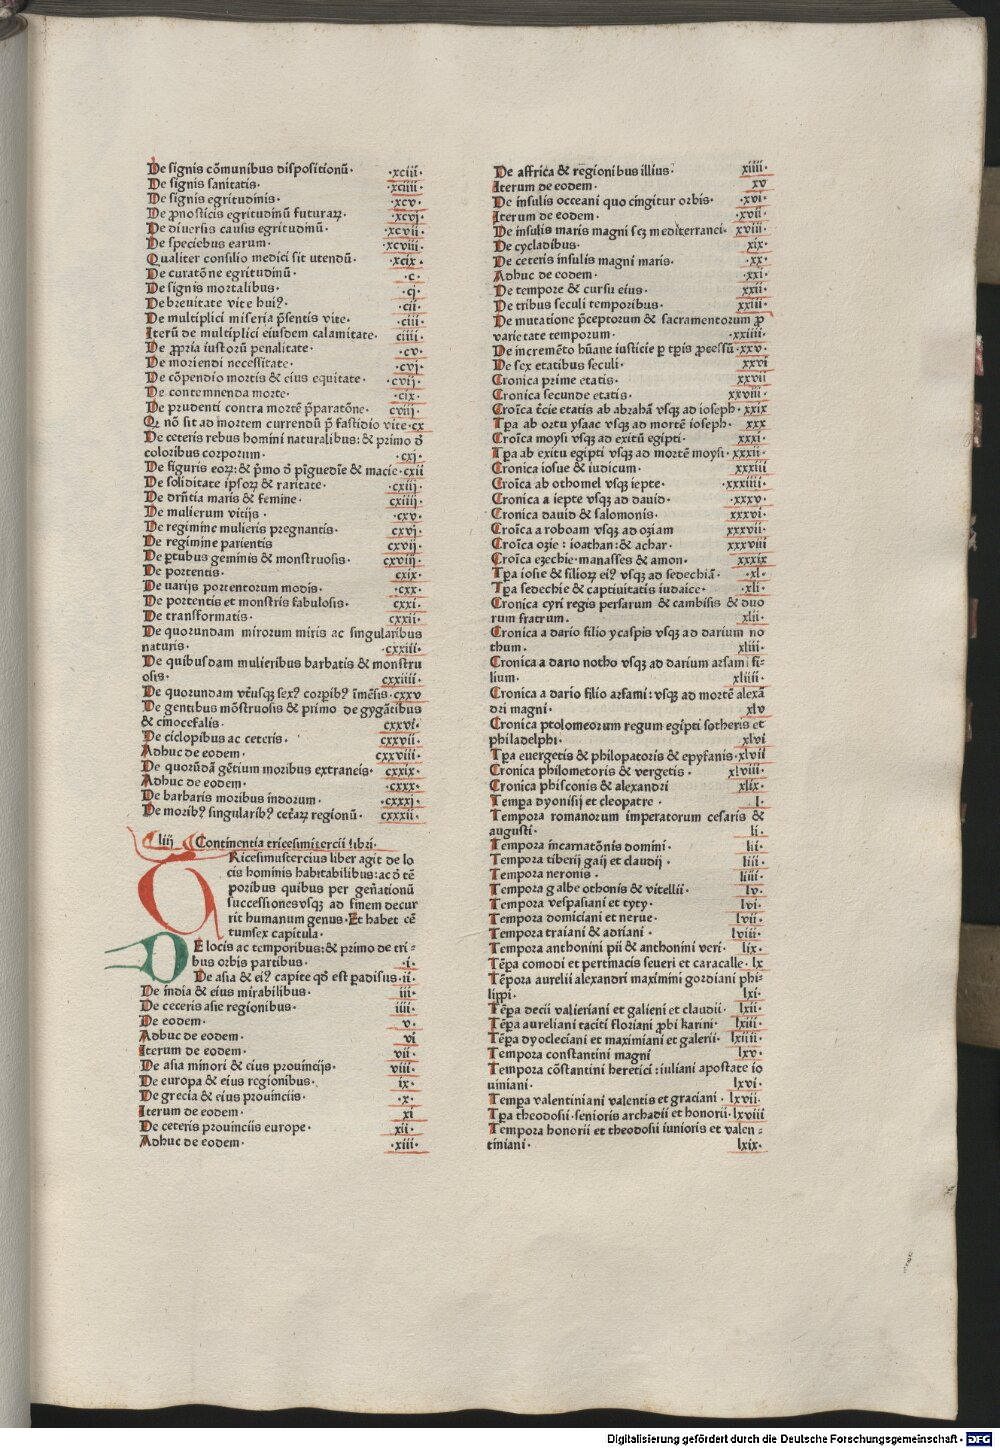 De signis cōmunibus dispositionū· ·xciii·
De signis sanitatis· ·xciiii·
De signis egritudinis· ·xcv·
De ꝓnosticis egritudinū futuraꝝ· ·xcvj·
De diuersis causis egritudinū· ·xcvii·
De speciebus earum· ·xcviii·
Qualiter consilio medici sit utendū· ·xcix·
De curatōne egritudinū· ·c·
De signis mortalibus· ·cj·
De breuitate vite huiꝰ· ·cii·
De multiplici miseria p̄sentis vite· ·ciii·
Iterū de multiplici eiusdem calamitate· ciiii·
De ꝓpria iustorū penalitate· ·cv·
De moriendi necessitate· ·cvj·
De cōpendio mortis & eius equitate· ·cvij·
De contemnenda morte· ·cix·
De prudenti contra mortē p̄paratōne· cviij·
Qꝛ nō sit ad mortem currendū p̄ fastidio vite·cx
De ceteris rebus homini naturalibus: & primo d̄
coloribus corporum· ·cxj·
De figuris eoꝝ: & p̄mo d̄ pīguedīe & macie·cxii
De soliditate ipsoꝝ & raritate· ·cxiij·
De drn̄tia maris & femine· cxiiij·
De mulierum vitijs· ·cxv·
De regimine mulieris pregnantis· ·cxvj·
De regimine parientis cxvij·
De ꝑtubus geminis & monstruosis· cxviij·
De portentis· ·cxix·
De uarijs portentorum modis· ·cxx·
De portentis et monstris fabulosis· ·cxxi·
De transformatis· ·cxxii·
De quorundam mirorum miris ac singularibus
naturis· ·cxxiii·
De quibusdam mulieribus barbatis & monstru
osis· cxxiiii·
De quorundam vtrīusqꝫ sexꝰ corꝑibꝰ īmēsis·cxxv
De gentibus mōstruosis & primo de gygātibus
& cinocefalis· cxxvi·
De ciclopibus ac ceteris· ·cxxvii·
Adhuc de eodem· cxxviii·
De quorūdā gētium moribus extraneis· cxxix·
Adhuc de eodem· ·cxxx·
De barbaris moribus indorum· ·cxxxj·
De moribꝰ singularibꝰ ceteraꝝ regionū· cxxxii·
C liij Continentia tricesimitercii libri·
TRicesimustercius liber agit de lo
cis hominis habitabilibus: ac d̄ tē
poribus quibus per gen̄ationū
successiones vsqꝫ ad finem decur
rit humanum genus· Et habet cē
tumsex capitula·
DE locis ac temporibus: & primo de tri⸗
bus orbis partibus· ·i·
De asia & eiꝰ capite qd̄ est ꝑadisus·ii·
De india & eius mirabilibus· iii·
De ceceris asie regionibus· iiii·
De eodem· v·
Adhuc de eodem· vi
Iterum de eodem· vii·
De asia minori & eius prouincijs· viii·
De europa & eius regionibus· ix·
De grecia & eius prouinciis· ·x·
Iterum de eodem· xi
De ceteris prouinciis europe· xii·
Adhuc de eodem· ·xiii·
De affrica & regionibus illius· xiiii·
Iterum de eodem· xv
De insulis occeani quo cingitur orbis· ·xvi·
Iterum de eodem· ·xvii·
De insulis maris magni scꝫ mediterranei· xviii·
De cycladibus· xix·
De ceteris insulis magni maris· ·xx·
Adhuc de eodem· ·xxi·
De tempore & cursu eius· xxii·
De tribus seculi temporibus· xxiii·
De mutatione p̄ceptorum & sacramentorum ꝓ
varietate temporum· ·xxiiii·
De incremēto hūane iusticie ꝑ tp̄is ꝓcessū·xxv·
De sex etatibus seculi· xxvi
Cronica prime etatis· xxvii
Cronica secunde etatis· xxviii·
Croīca tc̄ie etatis ab abrahā vsqꝫ ad ioseph· xxix
Tp̄a ab ortu ysaac vsqꝫ ad mortē ioseph· xxx
Croīca moysi vsqꝫ ad exitū egipti· xxxi·
Tp̄a ab exitu egipti vsqꝫ ad mortē moysi· xxxii·
Cronica iosue & iudicum· xxxiii
Croīca ab othomel vsqꝫ iepte· ·xxxiiii·
Cronica a iepte vsqꝫ ad dauid· ·xxxv·
Cronica dauid & salomonis· xxxvi·
Croīca a roboam vsqꝫ ad oziam xxxvii·
Croīca ozie: ioathan: & achar· xxxviii
Croīca ezechie·manasses & amon· xxxix
Tp̄a iosie & filioꝝ eiꝰ vsqꝫ ad sedechiā· ·xl·
Tp̄a sedechie & captiuitatis iudaice· ·xli·
Cronica cyri regis persarum & cambisis & duo
rum fratrum· xlii·
Cronica a dario filio ycaspis vsqꝫ ad darium no
thum· xliii·
Cronica a dario notho vsqꝫ ad darium arsami fi⸗
lium· xliiii·
Cronica a dario filio arsami: vsqꝫ ad mortē alexā
dri magni· xlv
Cronica ptolomeorum regum egipti sotheris et
philadelphi· xlvi
Tp̄a euergetis & philopatoris & epyfanis·xlvii
Cronica philometoris & vergetis· xlviii·
Cronica phisconis & alexandri xlix·
Temꝑa dyonisij et cleopatre· l·
Tempora romanorum imperatorum cesaris &
augusti· li·
Tempora incarnatōnis domini· lii·
Tempora tiberij gaij et claudij· liii·
Tempora neronis· liiii·
Tempora galbe othonis & vitellii· lv·
Tempora vespasiani et tyty· lvi·
Tempora domiciani et nerue· lvii·
Tempora traiani & adriani· lviii·
Tempora anthonini pii & anthonini veri· lix·
Tēp̄a comodi et pertinacis seueri et caracalle· lx
Tēpora aurelii alexandri maximini gordiani phi⸗
lippi· lxi·
Tēp̄a decii valieriani et galieni et claudii· lxii·
Tēp̄a aureliani taciti floriani ꝓbi karini· lxiii·
Tēp̄a dyocleciani et maximiani et galerii· lxiiii·
Tempora constantini magni lxv·
Tempora cōstantini heretici: iuliani apostate io
uiniani· lxvi·
Temꝑa valentiniani valentis et graciani· lxvii·
Tp̄a theodosii·senioris archadii et honorii·lxviii
Tempora honorii et theodosii iunioris et valen⸗
tiniani· lxix·
Digitalisierung gefördert durch die Deutsche Forschungsgemeinschaft - DFG